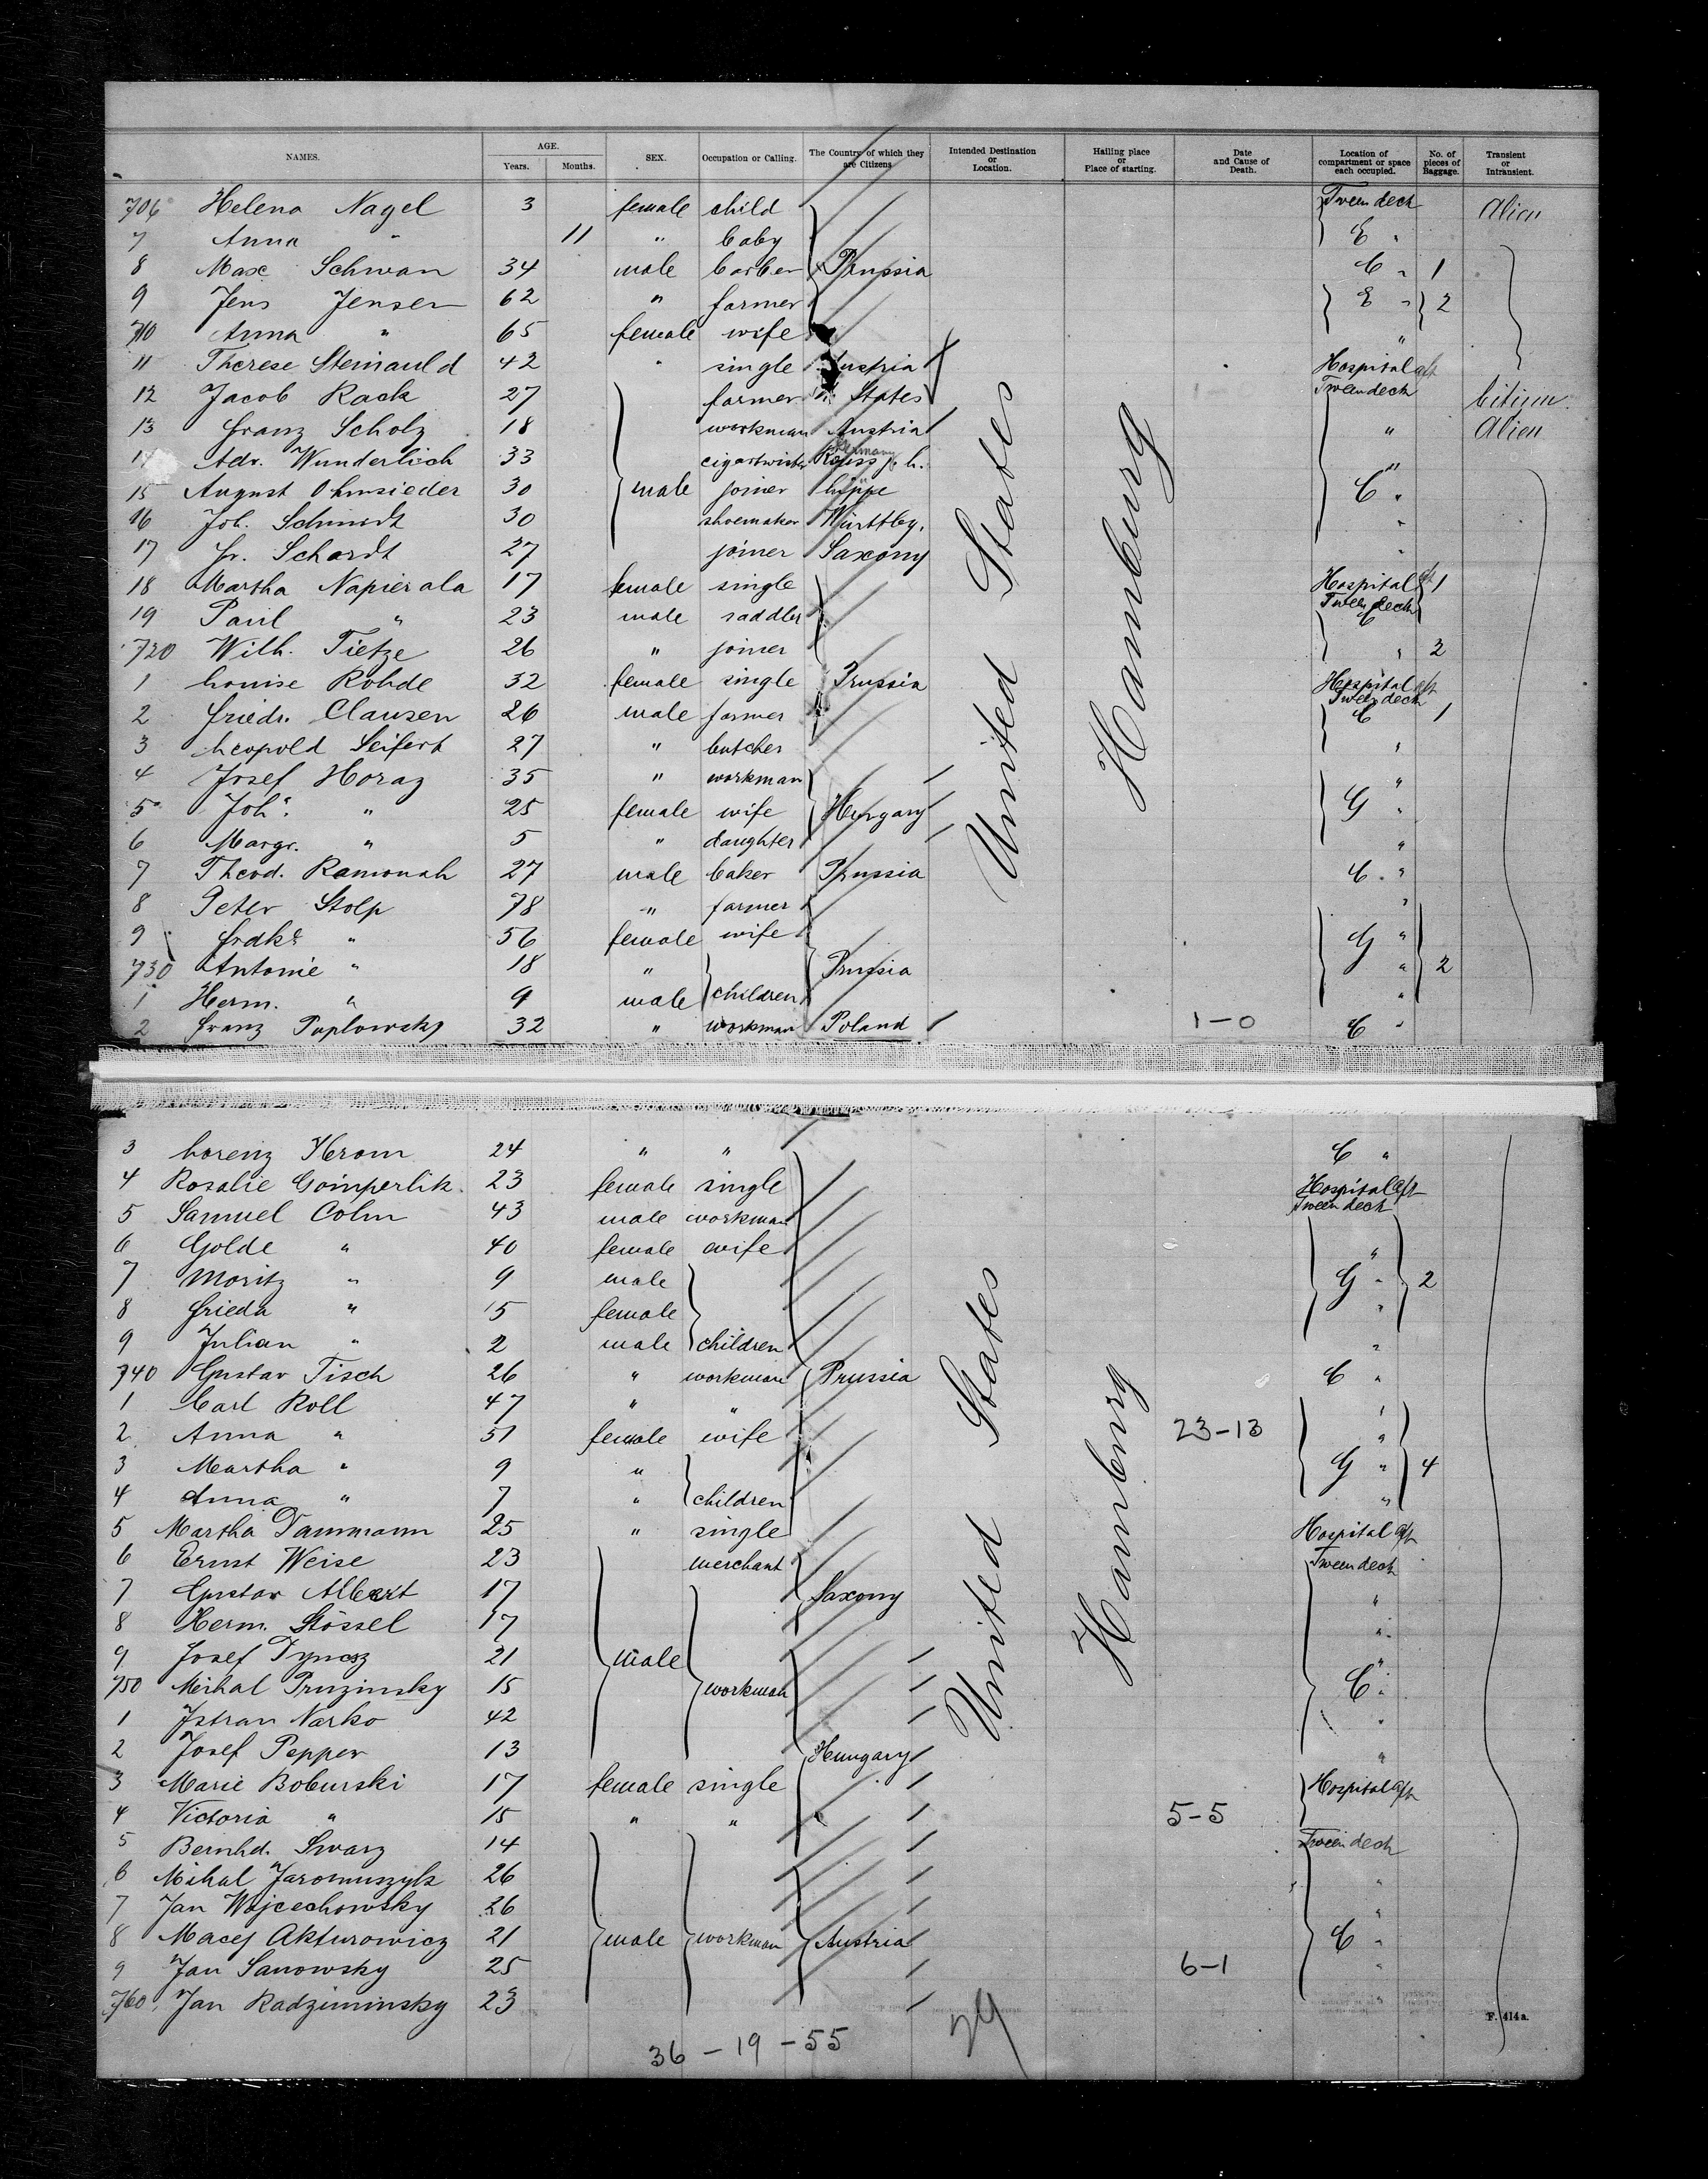 NAMES. AGE. Years. Months. SEX. Occupation or Calling. The Country of which they are Citizens Intended Destination or Location. Hailing place or Place of starting. Date and Cause of Death. Location of compartment or space each occupied. No. of pieces of Baggage. Transient or Intransient.
706 Helena Nagel 3 female child Tween deck Alien
7 Anna " 11 " baby E "
8 Max Schwan 34 male barber Prussia C " 1
9 Jens Jensen 62 " farmer E " 2
710 Anna " 65 female wife "
11 Therese 42 " single Austria Hospital aft
12 Jacob Rack 27 farmer States Tween deck Citizen
13 Franz Scholz 18 workman Austria " Alien
Adr. Wunderlich 33 Germany "
15 August Ohmsieder 30 male joiner Lippe C "
16 Joh. Schmidt 30 shoemaker Württbg. "
17 Fr. Schardt 27 joiner Saxony "
18 Martha Napierala 17 female single Hospital aft 1
19 Paul " 23 male saddler Tween deck C
720 Wilh. Tietze 26 " joiner " 2
1 Louise Rohde 32 female single Prussia Hospital aft
2 Friedr. Clausen 26 male farmer Tween deck C 1
3 Leopold Seifert 27 " butcher "
4 Josef Horaz 35 " workman "
5 Joh. " 25 female wife Hungary G "
6 Margr. " 5 " daughter "
7 Theod. 27 male baker Prussia C "
8 Peter Stolp 78 " farmer "
9 Frdke " 56 female wife G "
730 Antonie " 18 " Prussia " 2
1 Herm. " 9 male children "
2 Franz Poplowsky 32 " workman Poland 1-0 C "
United States
Hamburg
3 Lorenz Krom 24 " " C "
4 Rosalie Gomperlik 23 female single Hospital aft
5 Samuel Cohn 43 male workman Tween deck
6 Golde " 40 female wife "
7 Moritz " 9 male G " 2
8 Frieda " 15 female "
9 Julian " 2 male children "
740 Gustav Tisch 26 " workman Prussia C "
1 Carl Roll 47 " " "
2 Anna " 51 female wife 23-13 "
3 Martha " 9 " G " 4
4 Anna " 7 " children "
5 Martha Dammann 25 " single Hospital aft
6 Ernst Weise 23 merchant Tween deck
7 Gustav Albert 17 Saxony "
8 Herm. Stössel 17 "
9 Josef 21 male "
750 Mihal Pruzinsky 15 workman C "
1 Istran Narko 42 "
2 Josef Pepper 13 Hungary "
3 Marie Boburski 17 female single Hospital aft
4 Victoria " 15 " " " 5-5
5 Bernhd. Swarz 14 Tween deck
6 Mihal Jaromuszyk 26 "
7 Jan Wojcechowsky 26 "
8 Macej Akturowicz 21 male workman Austria C "
9 Jan Sanowsky 25 6-1 "
760 Jan Radziminsky 23 "
United States
Hamburg
F. 414a.
36-19-55